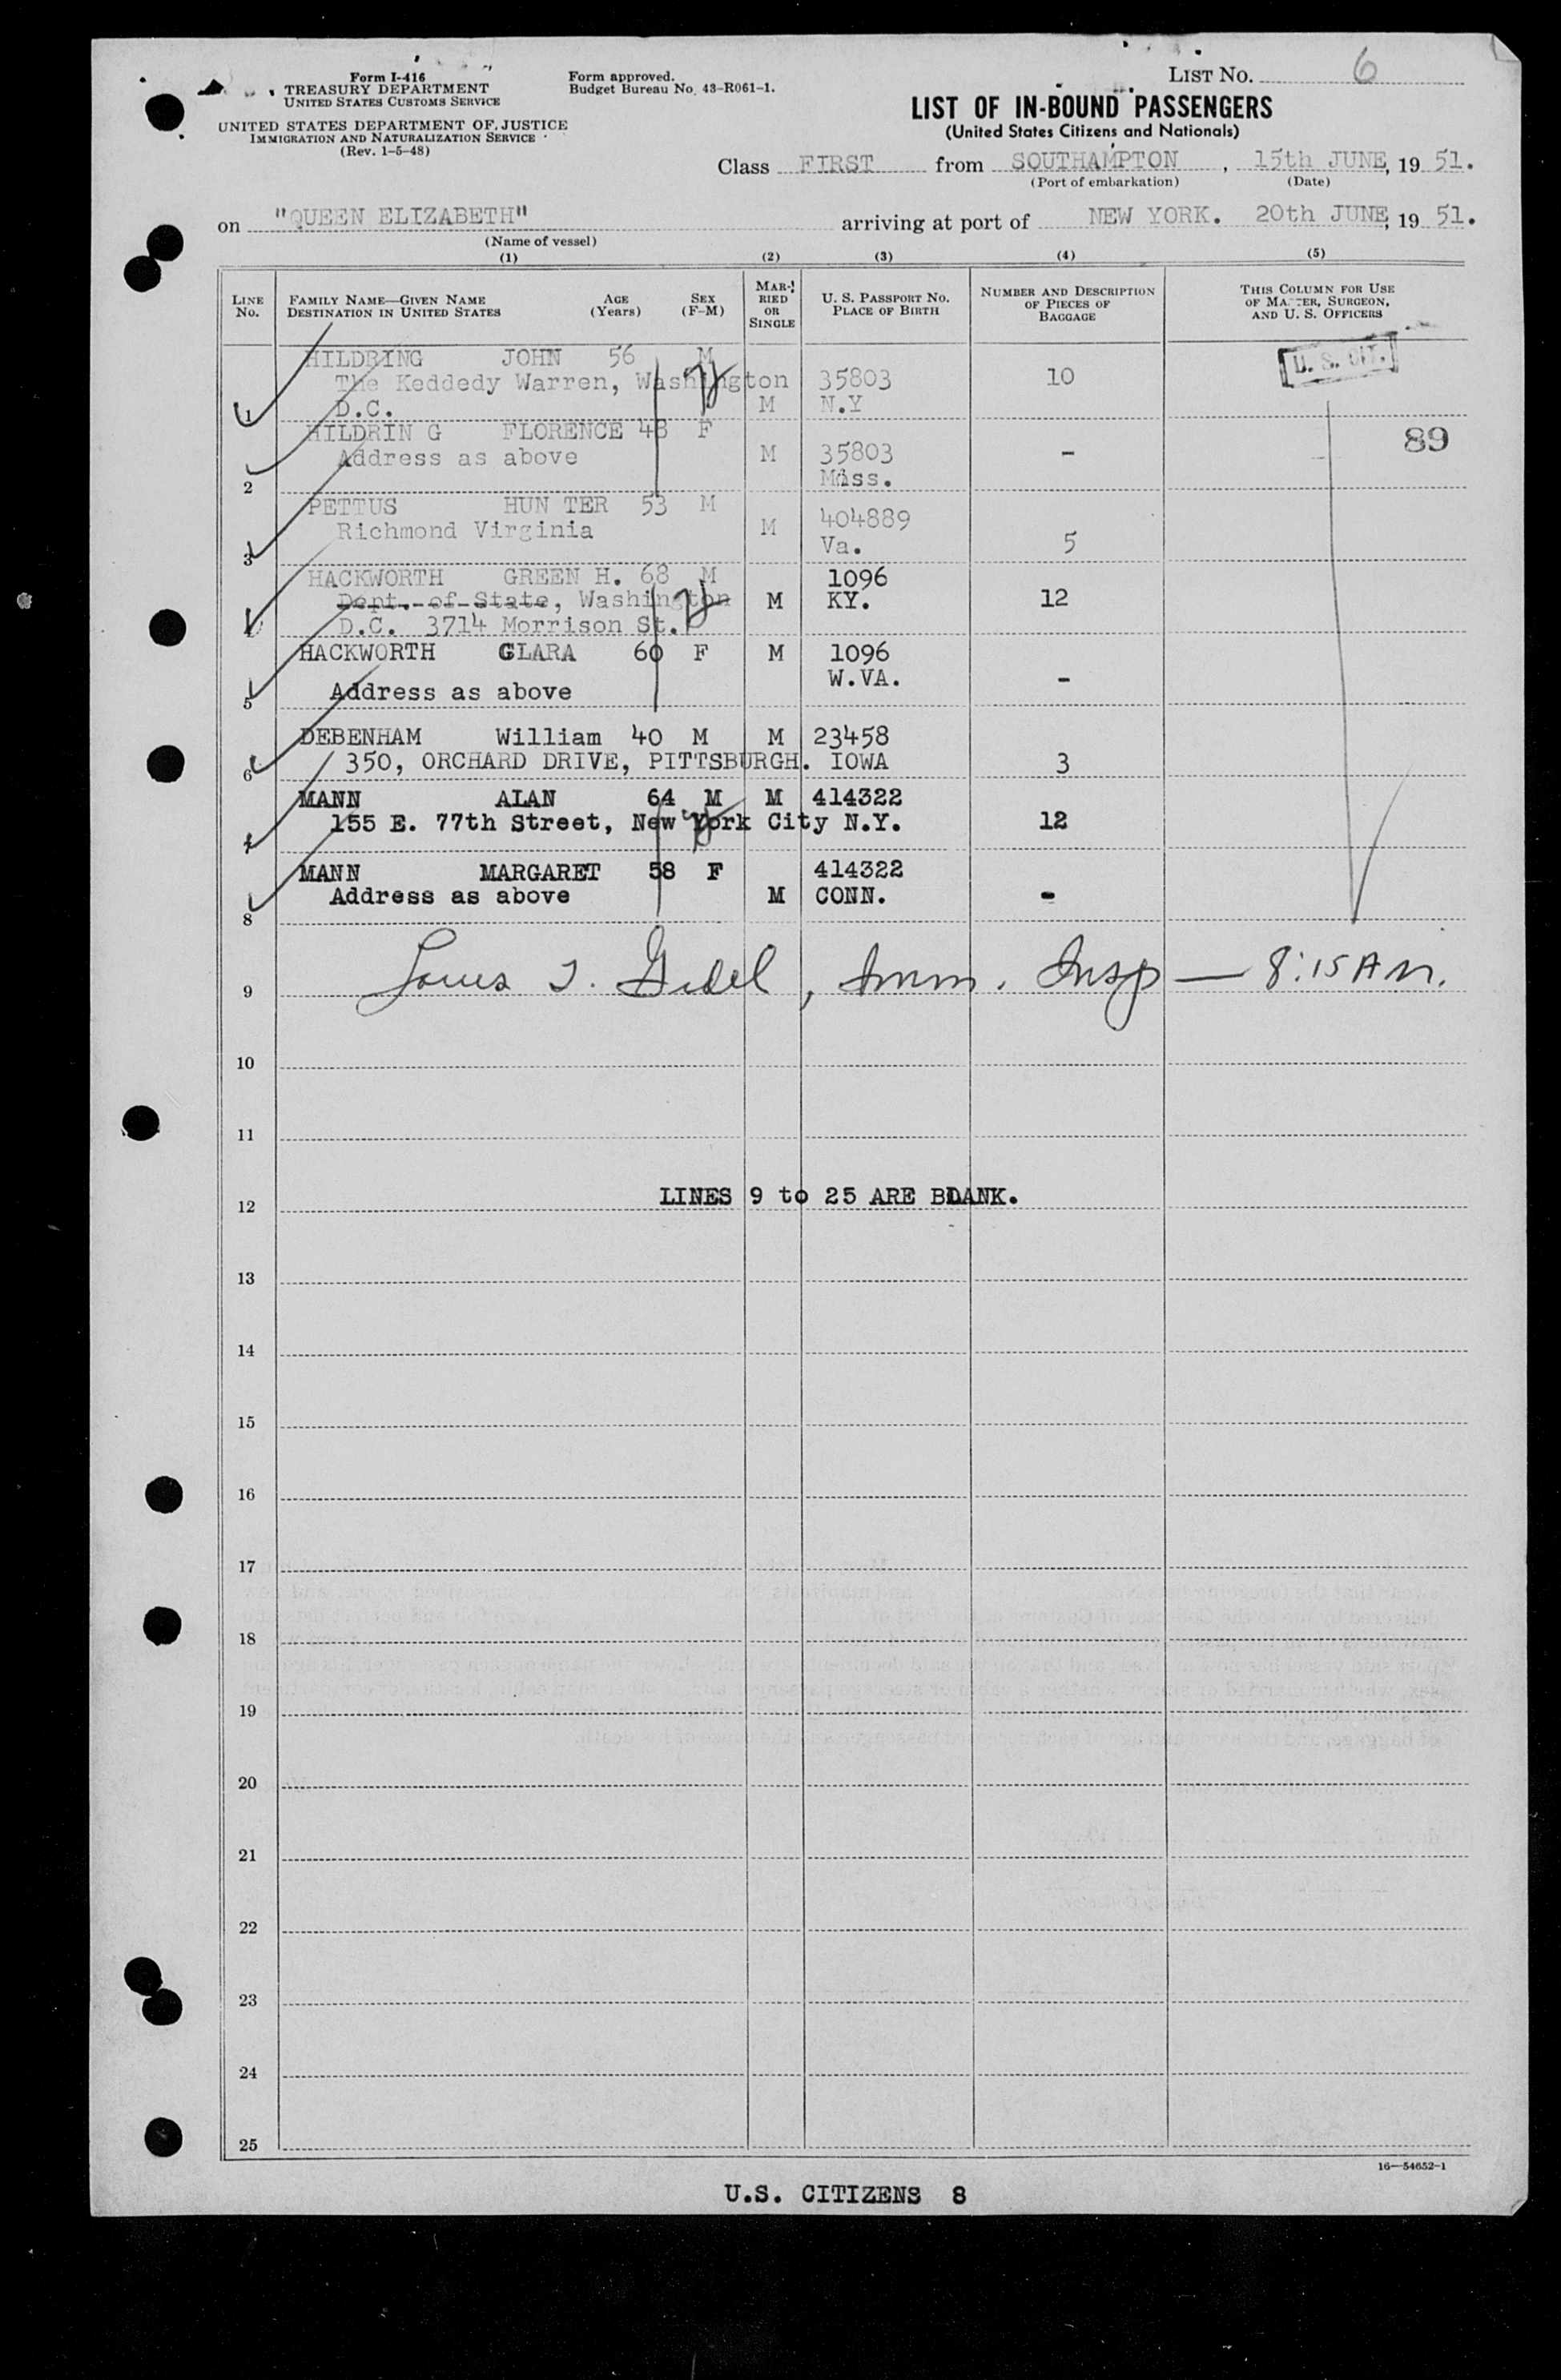 Form I-416
TREASURY DEPARTMENT
UNITED STATES CUSTOMS SERVICE
UNITED STATES DEPARTMENT OF JUSTICE
IMMIGRATION AND NATURALIZATION SERVICE
(Rev. 1-5-48)
Form approved.
Budget Bureau No. 43-R061-1.
LIST No. 6
LIST OF IN-BOUND PASSENGERS
(United States Citizens and Nationals)
Class FIRST from SOUTHAMPTON, 15th JUNE, 19 51.
(Port of embarkation) (Date)
on "QUEEN ELIZABETH" arriving at port of NEW YORK. 20th JUNE, 19 51.
(Name of vessel)
(1) (2) (3) (4) (5)
LINE No. FAMILY NAME—GIVEN NAME DESTINATION IN UNITED STATES AGE (Years) SEX (F-M) MARRIED OR SINGLE U. S. PASSPORT No. PLACE OF BIRTH NUMBER AND DESCRIPTION OF PIECES OF BAGGAGE THIS COLUMN FOR USE OF MASTER, SURGEON, AND U. S. OFFICERS
HILDRING JOHN 56 M
The Keddedy Warren, Washington 35803 10
1 D.C. M N.Y
HILDRIN G FLORENCE 48 F 89
Address as above M 35803 -
2 Miss.
PETTUS HUN TER 53 M 404889
Richmond Virginia M
3 Va. 5
HACKWORTH GREEN H. 68 M 1096
Dept. of State, Washington M KY. 12
D.C. 3714 Morrison St.
HACKWORTH CLARA 60 F M 1096
W.VA. -
5 Address as above
DEBENHAM William 40 M M 23458
6 350, ORCHARD DRIVE, PITTSBURGH. IOWA 3
MANN ALAN 64 M M 414322
155 E. 77th Street, New York City N.Y. 12
7
MANN MARGARET 58 F 414322
Address as above M CONN. -
8
9 Louis T. Gidel, Imm. Insp — 8:15 AM.
10
11
LINES 9 to 25 ARE BLANK.
12
13
14
15
16
17
18
19
20
21
22
23
24
25
16—54652-1
U.S. CITIZENS 8